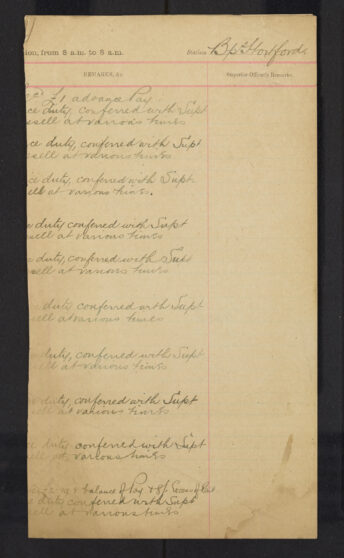 ion, from 8 a.m. to 8 a.m. Station Bp. Stortford
REMARKS, &c. Superior Officer's Remarks.
£1 advance Pay
ce duty, conferred with Supt
ssell at various times
nce duty, conferred with Supt
ssell at various times
ce duty, conferred with Supt
ell at various times.
e duty conferred with Supt
sell at various times
e duty, conferred with Supt
sell at various times
e duty conferred with Supt
sell at various times
e duty, conferred with Supt
sell at various times
e duty, conferred with Supt
sell at various times
ce duty conferred with Supt
sell at various times
balance of Pay
ce duty conferred with Supt
sell at various times